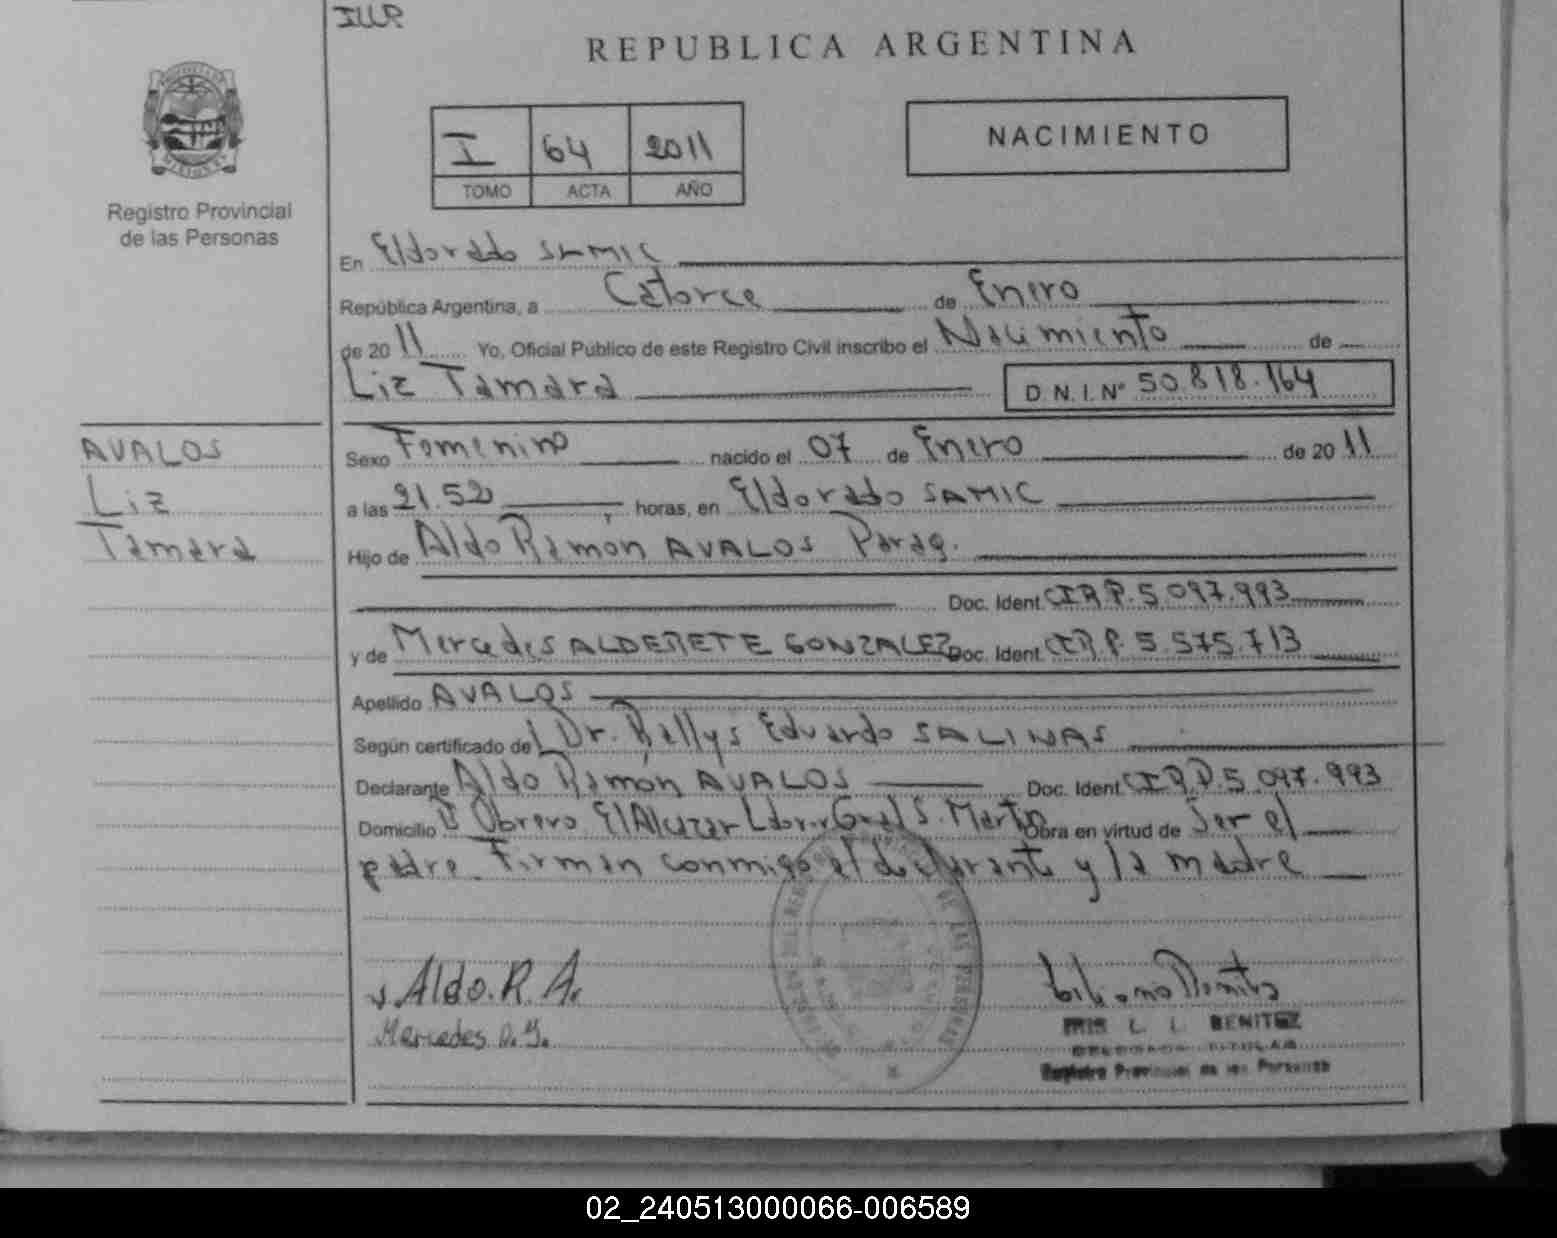 REPUBLICA ARGENTINA
I 64 2011
TOMO ACTA AÑO
NACIMIENTO
Registro Provincial
de las Personas
En Eldorado SAMIC
República Argentina, a Catorce de Enero
de 2011 Yo, Oficial Público de este Registro Civil inscribo el Nacimiento de
Liz Tamara D.N.I.Nº 50.818.164
AVALOS
Liz
Tamara
Sexo Femenino nacido el 07 de Enero de 2011
a las 21.52 horas, en Eldorado SAMIC
Hijo de Aldo Ramón AVALOS Parag.
Doc. Ident. CIRP. 5.097.993
y de Mercedes ALDERETE GONZALEZ Doc. Ident. CIRP. 5.575.713
Apellido AVALOS
Según certificado del Dr. Rellys Eduardo SALINAS
Declarante Aldo Ramón AVALOS Doc. Ident. CIRP. 5.097.993
Domicilio Bº Obrero El Alcazar Gral S. Martin Obra en virtud de Ser el
padre. Firman conmigo el declarante y la madre
Aldo. R. A.
Mercedes
L. L. BENITEZ
DELEGADA TITULAR
Registro Provincial de las Personas
DE LAS PERSONAS
02_240513000066-006589